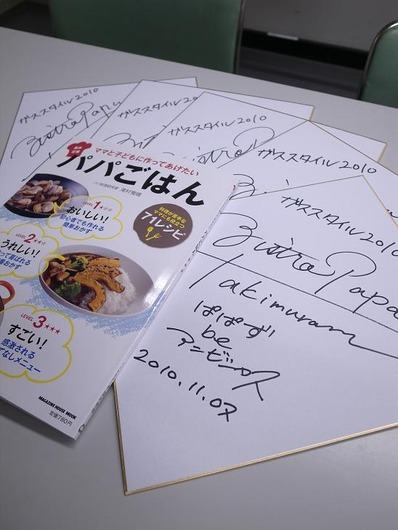 ガススタイル2010
ガススタイル2010
ガススタイル2010
ガススタイル2010
ガススタイル2010
Bistro Papa
Takimuram
ぱぱーず!
be
アンビシャス
2010.11.07
ママと子どもに作ってあげたい
パパごはん
滝村雅晴
71レシピ
LEVEL 1
おいしい!
初心者でも作れる
簡単おかず
LEVEL 2
うれしい!
LEVEL 3
すごい!
感激される
おもてなしレシピ
MAGAZINE HOUSE MOOK
定価780円